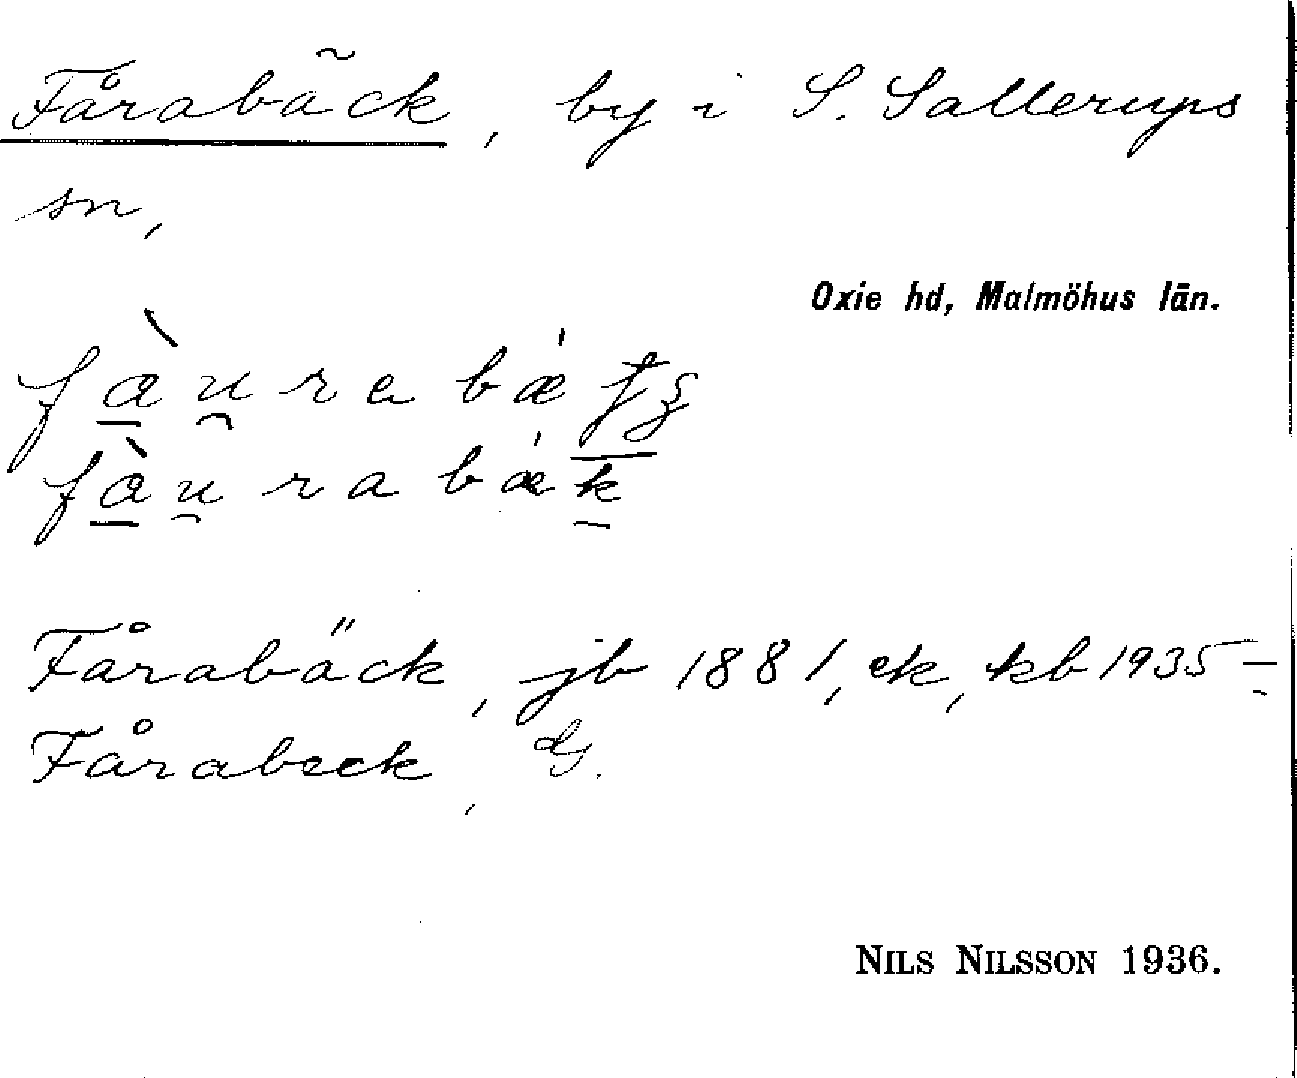 Fårabäck, by i S. Sallerups
sn,
Oxie hd, Malmöhus län.
fàu̯rabǽ
fàu̯rabǽk
Fårabäck, jb 1881, ek, kb 1935–
Fårabeck, dG.
NILS NILSSON 1936.